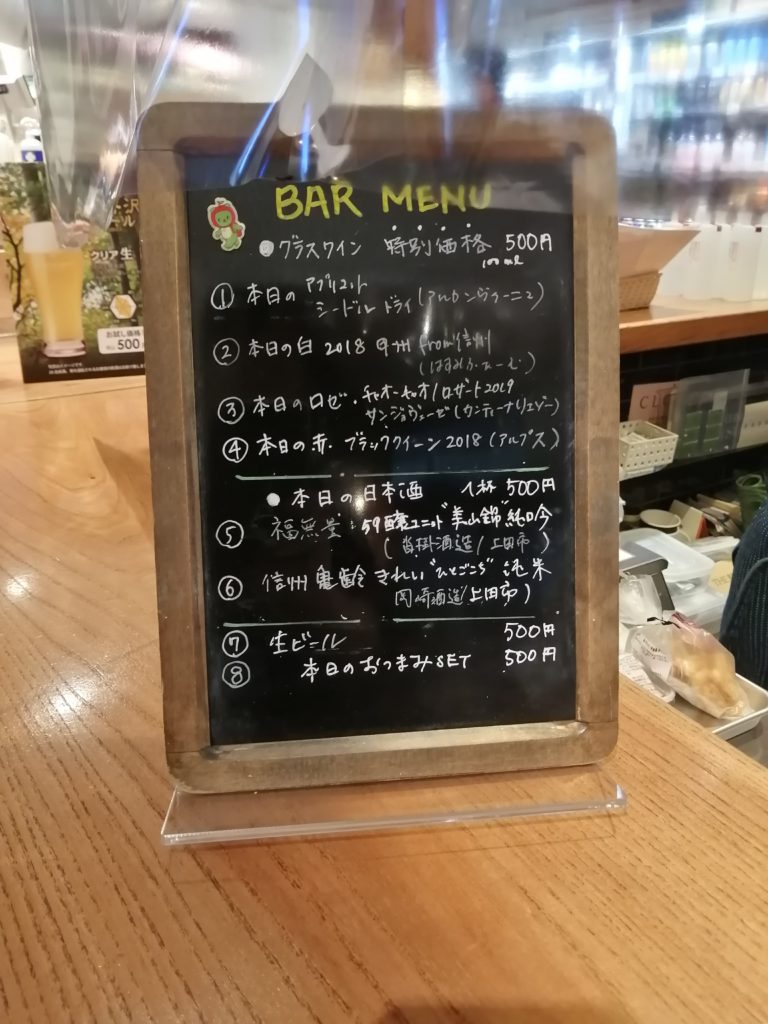 BAR MENU
グラスワイン 特別価格 500円
100ml
① 本日の アプリコット
シードル ドライ (アルカンヴィーニュ)
② 本日の白 2018 甲州 from信州
(はすみふぁーむ)
③ 本日のロゼ・チャオチャオ/ロザート2019
サンジョヴェーゼ(カンティーナリエゾー)
④ 本日の赤・ブラッククイーン2018(アルプス)
● 本日の日本酒 1杯 500円
⑤ 福無量 59醸ユニット"美山錦"純吟
(沓掛酒造/上田市)
⑥ 信州亀齢 きれい"ひとごこち"純米
岡崎酒造/上田市)
⑦ 生ビール 500円
⑧ 本日のおつまみSET 500円
クリア生
お試し価格
500円